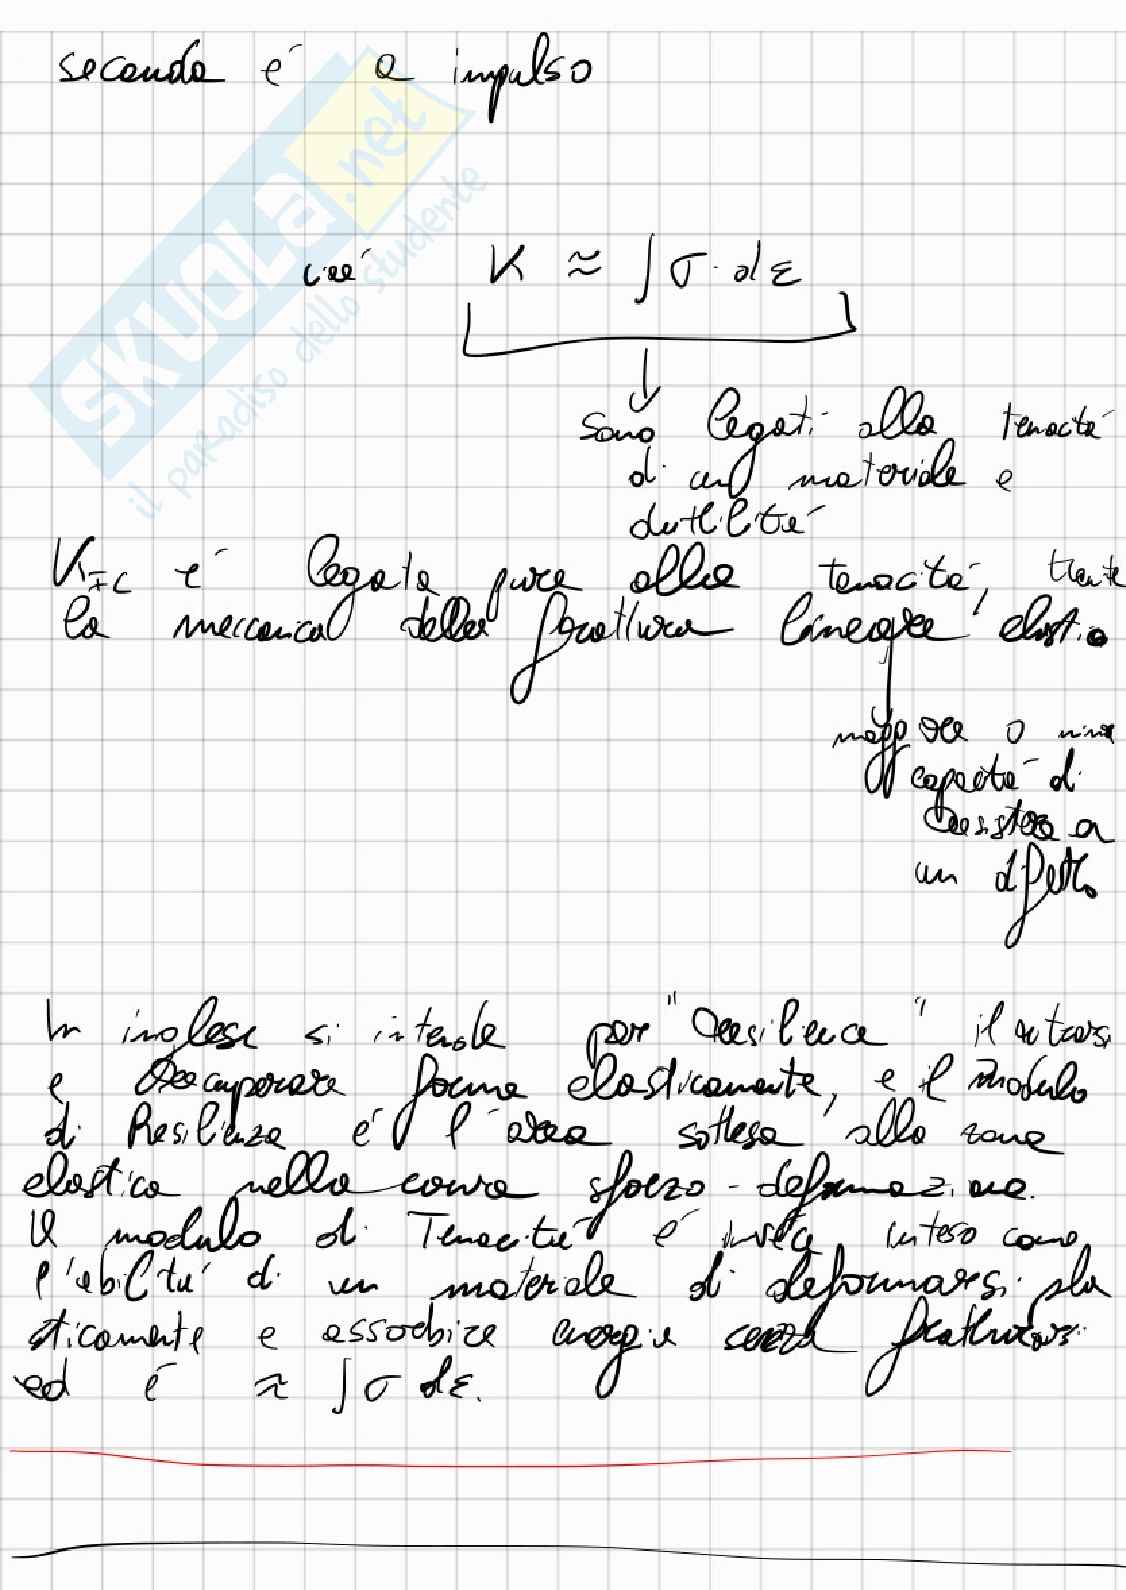 seconda é a impulso
K ≈ ∫ σ · dε
sono legati alla tenacità
di un materiale e
duttilità
K_IC é legata pure alla tenacità, tramite
la meccanica della frattura lineare elastica
maggiore o minore
capacità di
resistere a
un difetto
In inglese si intende per "Resilience" il
e recuperare forma elasticamente, e il modulo
di Resilienza é l'area sottesa alla zona
elastica nella curva sforzo-deformazione.
Il modulo di Tenacità é invece inteso come
l'abilità di un materiale di deformarsi pla
sticamente e assorbire energia senza fratturarsi
ed é ≈ ∫ σ dε.
SKUOLA.net
il paradiso dello studente